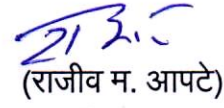 (राजीव म. आपटे)